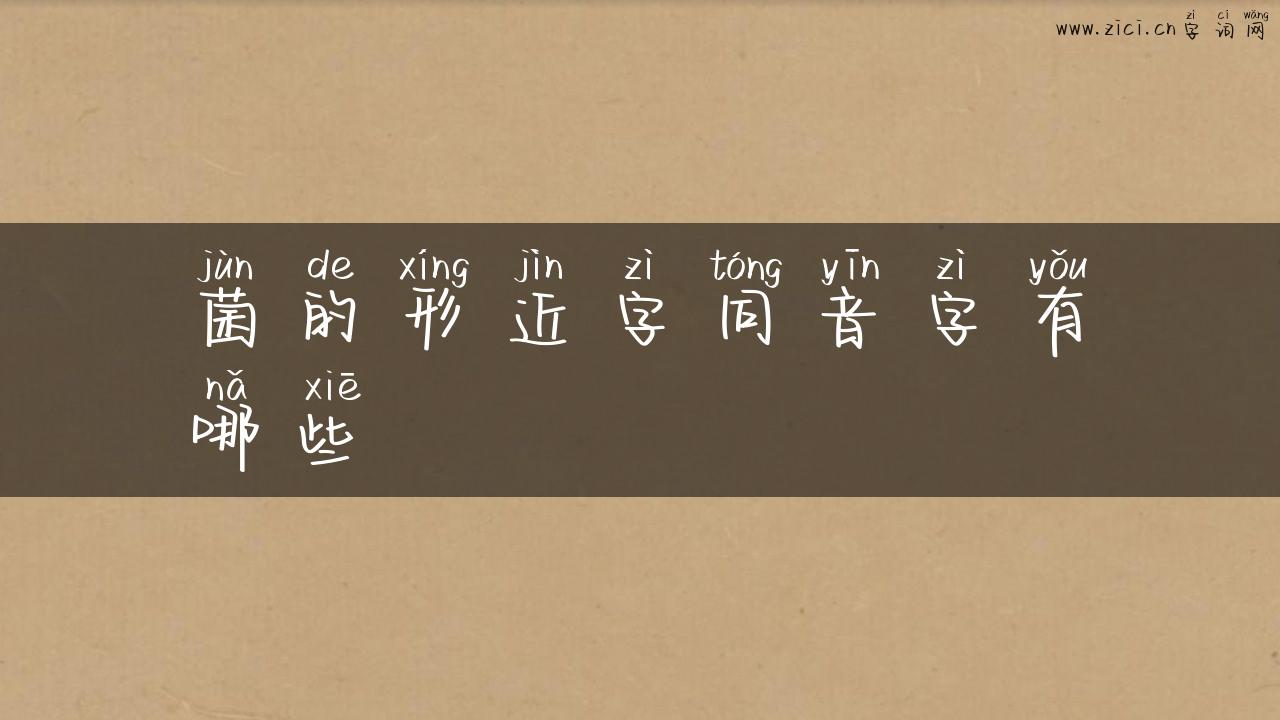 zì cí wǎng
www.zici.cn 字 词 网
jùn de xíng jìn zì tóng yīn zì yǒu
菌 的 形 近 字 同 音 字 有
nǎ xiē
哪 些